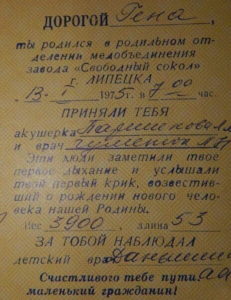 ДОРОГОЙ Гена,
ты родился в родильном от-
делении медобъединения
завода «Свободный сокол»
г. ЛИПЕЦКА
13 I 1975 в 7 00 час.
ПРИНЯЛИ ТЕБЯ
акушерка
и врач
Эти люди заметили твое
первое дыхание и услышали
твой первый крик, возвестив-
ший о рождении нового чело-
века нашей Родины.
Вес 3900 длина 53
ЗА ТОБОЙ НАБЛЮДАЛ
детский врач
Счастливого тебе пути,
маленький гражданин!